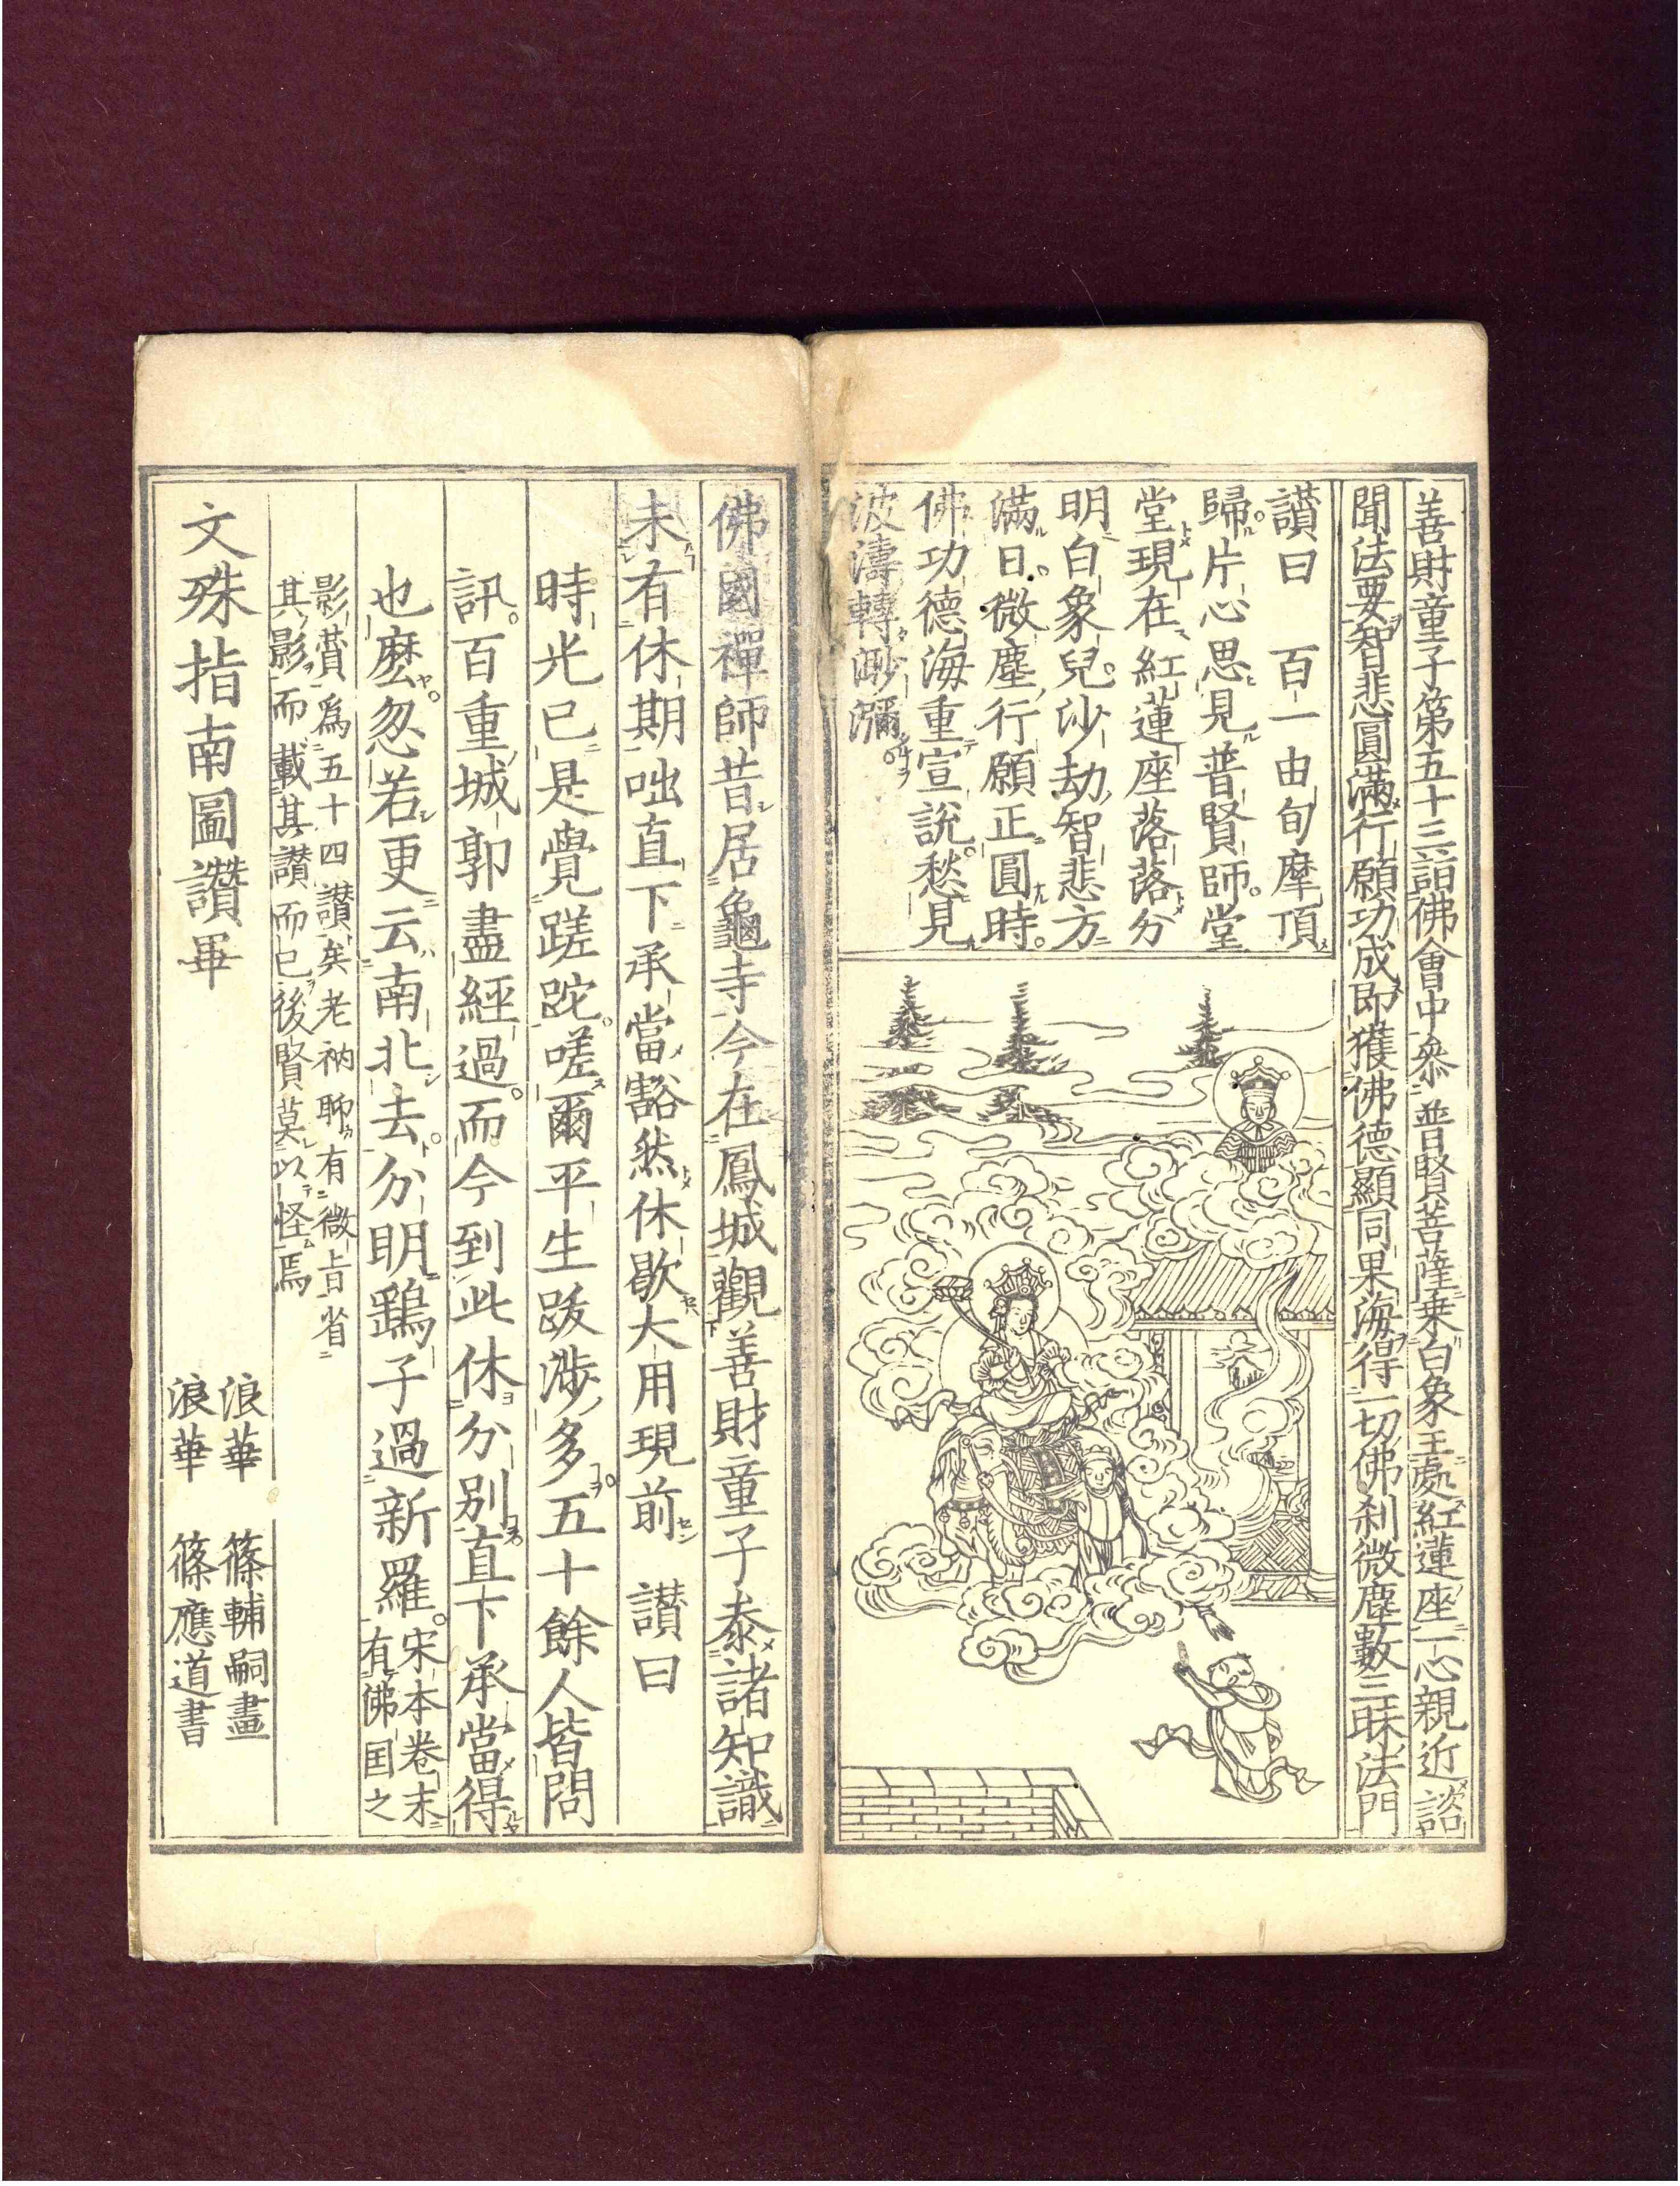 善財童子第五十三詣佛會中參　普賢菩薩乗白象王處紅蓮座一心親近　談
聞法要智悲圓滿行願功成即獲佛德顯同果海得一切佛刹微塵數三昧法門
讃曰　百一由旬摩頂
歸片心思見普賢師堂
堂現在紅蓮座落落分
明白象兒沙劫智悲方
滿日微塵行願正圓時
佛功德海重宣說愁見
波濤轉渺瀰
佛國禪師昔居龜寺今在鳳城觀善財童子叅諸知識
未有休期咄直下承當豁然休歇大用現前　讃曰
時光已是覺蹉跎嗟爾平生跋渉多五十餘人皆問
訊百重城郭盡經過而今到此休分別直下承當得
也麼忽若更云南北去分明鷂子過新羅宋本卷末
有佛国之
影賛爲五十四讃矣老衲聊有微旨省
其影而載其讃而已後賢莫以怪焉
文殊指南圖讚畢
浪華　篠輔嗣畫
浪華　篠應道書